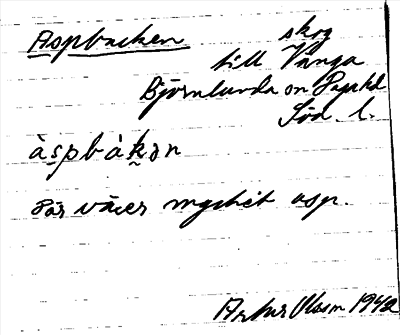 Aspbacken
skog
till Vånga
Björnlunda sn Daga hd
Söd. l.
àspbàkən
Där växer mycket asp.
Artur Olsson 1942